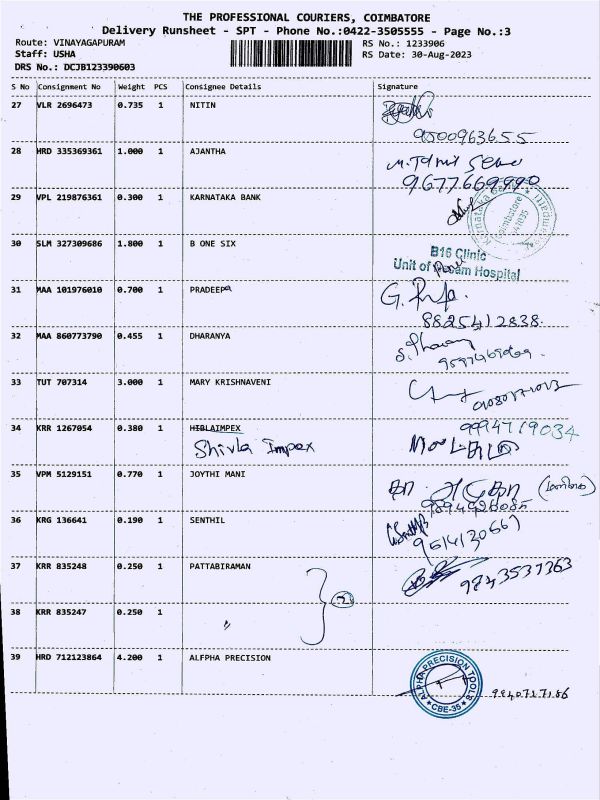 THE PROFESSIONAL COURIERS, COIMBATORE
Delivery Runsheet - SPT - Phone No.:0422-3505555 - Page No.:3
Route: VINAYAGAPURAM RS No.: 1233906
Staff: USHA RS Date: 30-Aug-2023
DRS No.: DCJB123390603
S No Consignment No Weight PCS Consignee Details Signature
27 VLR 2696473 0.735 1 NITIN
9500963655
28 HRD 335369361 1.000 1 AJANTHA
9677669990
29 VPL 219876361 0.300 1 KARNATAKA BANK
30 SLM 327309686 1.800 1 B ONE SIX B16 Clinic
Unit of Hospital
31 MAA 101976010 0.700 1 PRADEEPa G.
8825412838.
32 MAA 860773790 0.455 1 DHARANYA
33 TUT 707314 3.000 1 MARY KRISHNAVENI
34 KRR 1267054 0.380 1 HIBLAIMPEX 9994719034
Shivla Impex
35 VPM 5129151 0.770 1 JOYTHI MANI
36 KRG 136641 0.190 1 SENTHIL
37 KRR 835248 0.250 1 PATTABIRAMAN 9843537363
2
38 KRR 835247 0.250 1 "
39 HRD 712123864 4.200 1 ALFPHA PRECISION
ALPHA PRECISION TOOLS
CBE-35